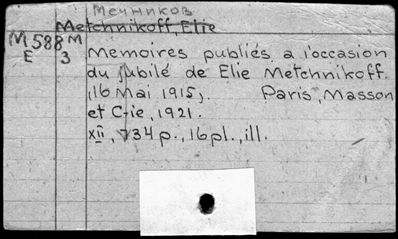 Мечников
Metchnikoff, Elie
M588M
E 3
Memoires publiés a l'occasion
du jubilé de Elie Metchnikoff.
(16 Mai 1915). Paris, Masson
et C-ie, 1921.
XII, 734 p., 16 pl., ill.